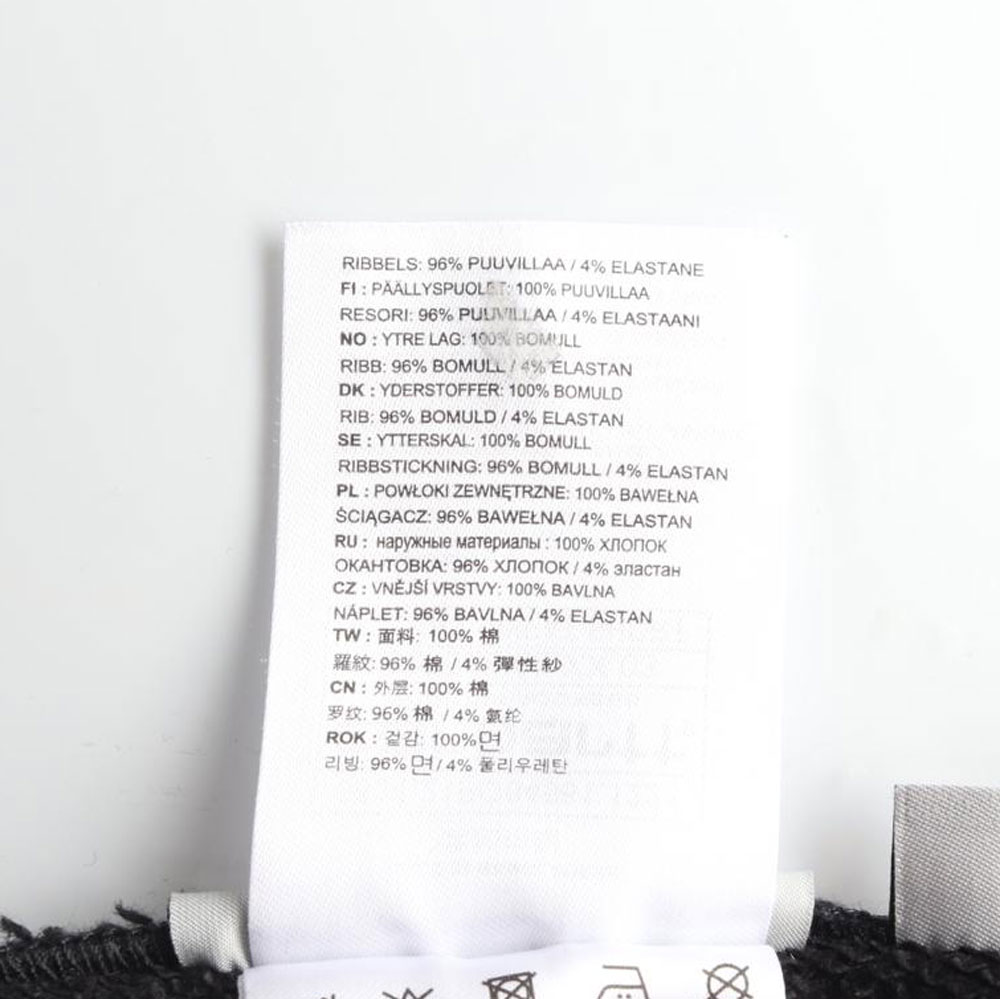 RIBBELS: 96% PUUVILLAA / 4% ELASTANE
FI : PÄÄLLYSPUOLET: 100% PUUVILLAA
RESORI: 96% PUUVILLAA / 4% ELASTAANI
NO : YTRE LAG: 100% BOMULL
RIBB: 96% BOMULL / 4% ELASTAN
DK : YDERSTOFFER: 100% BOMULD
RIB: 96% BOMULD / 4% ELASTAN
SE : YTTERSKAL: 100% BOMULL
RIBBSTICKNING: 96% BOMULL / 4% ELASTAN
PL : POWŁOKI ZEWNĘTRZNE: 100% BAWEŁNA
ŚCIĄGACZ: 96% BAWEŁNA / 4% ELASTAN
RU : наружные материалы : 100% ХЛОПОК
ОКАНТОВКА: 96% ХЛОПОК / 4% эластан
CZ : VNĚJŠÍ VRSTVY: 100% BAVLNA
NÁPLET: 96% BAVLNA / 4% ELASTAN
TW : 面料: 100% 棉
羅紋: 96% 棉 / 4% 彈性紗
CN : 外层: 100% 棉
罗纹: 96% 棉 / 4% 氨纶
ROK : 겉감: 100%면
리빙: 96% 면 / 4% 폴리우레탄